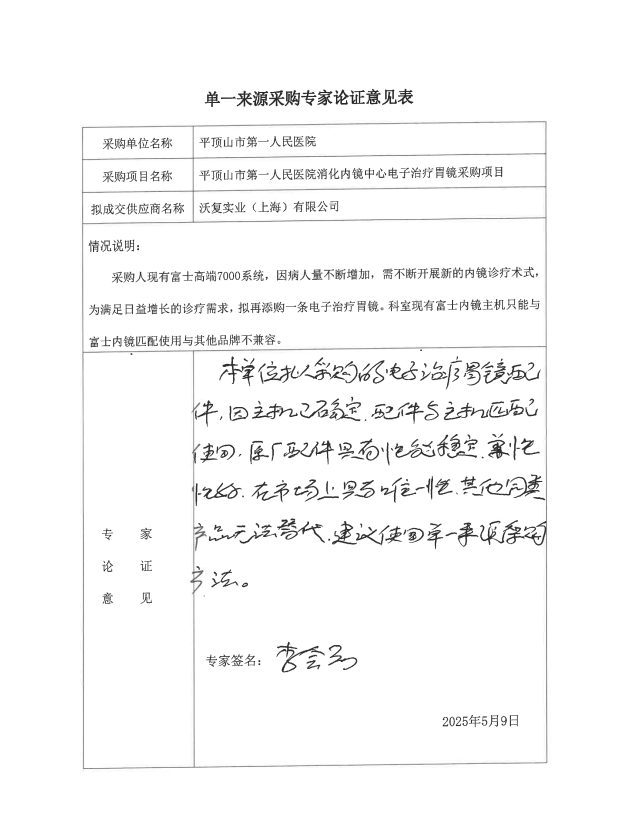 单一来源采购专家论证意见表
采购单位名称 平顶山市第一人民医院
采购项目名称 平顶山市第一人民医院消化内镜中心电子治疗胃镜采购项目
拟成交供应商名称 沃复实业（上海）有限公司
情况说明：
采购人现有富士高端7000系统，因病人量不断增加，需不断开展新的内镜诊疗术式，
为满足日益增长的诊疗需求，拟再添购一条电子治疗胃镜。科室现有富士内镜主机只能与
富士内镜匹配使用与其他品牌不兼容。
本单位拟采购的电子治疗胃镜配
件，因主机已确定，配件与主机匹配
使用，原厂配件具有性能稳定，兼
性好，在市场上具有唯一性，其他同类
产品无法替代，建议使用单一来源采购
方法。
专 家
论 证
意 见
专家签名：
2025年5月9日